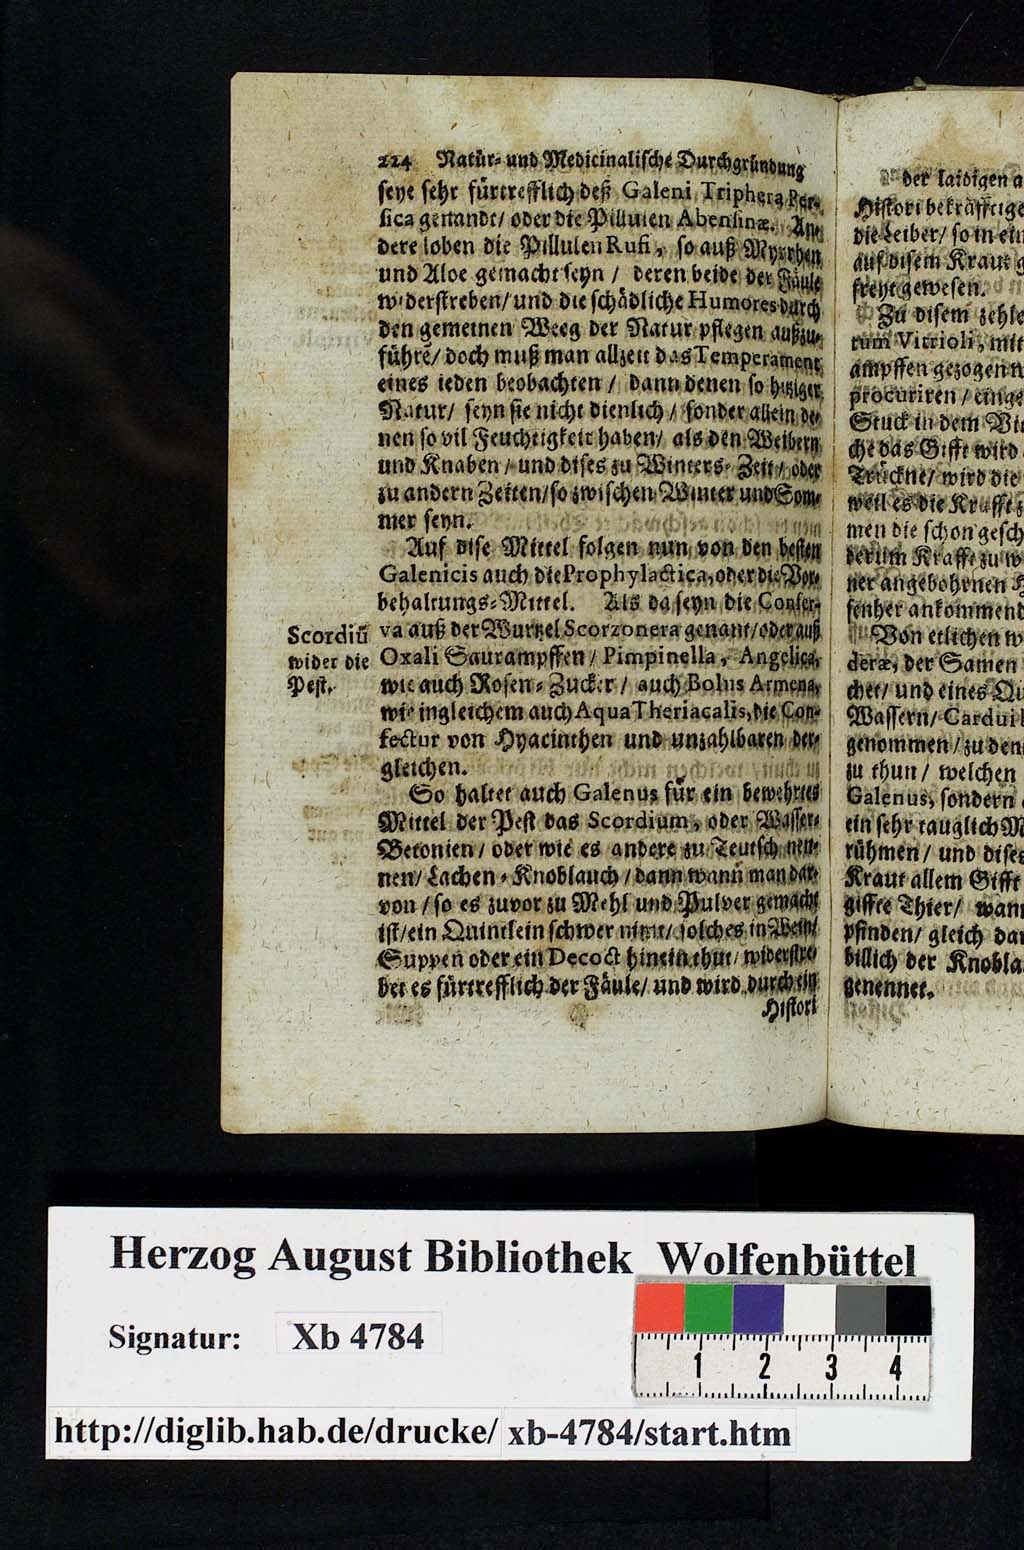 224 Natür- und Medicinalische Durchgründung
seye sehr fürtrefflich deß Galeni Triphera Per-
sica genandt/ oder die Pillulen Abensinæ. An-
dere loben die Pillulen Rufi, so auß Myrrhen
und Aloe gemacht seyn / deren beide der Fäule
widerstreben/ und die schädliche Humores durch
den gemeinen Weeg der Natur pflegen außzu-
führẽ/ doch muß man allzeit das Temperament
eines ieden beobachten / dann denen so hitziger
Natur/ seyn sie nicht dienlich / sonder allein de-
nen so vil Feuchtigkeit haben/ als den Weibern
und Knaben / und dises zu Winters- Zeit / oder
zu andern Zeiten/ so zwischen Winter und Som-
mer seyn.
Auf dise Mittel folgen nun von den besten
Galenicis auch die Prophylactica, oder die Vor-
behaltungs-Mittel. Als da seyn die Conser-
va auß der Wurtzel Scorzonera genant/ oder auß
Oxali Saurampffen / Pimpinella, Angelica,
wie auch Rosen- Zucker / auch Bolus Armena,
wie ingleichem auch Aqua Theriacalis, die Con-
fectur von Hyacinthen und unzahlbaren der-
gleichen.
Scordiũ
wider die
Pest.
So haltet auch Galenus für ein bewehrtes
Mittel der Pest das Scordium, oder Wasser-
Betonien / oder wie es andere zu Teutsch nen-
nen/ Lachen- Knoblauch / dann wann man dar-
von / so es zuvor zu Mehl und Pulver gemacht
ist/ ein Quintlein schwer nimt/ solches in Wein/
Suppen oder ein Decoct hinein thut/ widerstre-
bet es fürtrefflich der Fäule/ und wird durch ein
Histori
der laidigen
Histori bekräfftige
die Leiber/ so in ein
auf disem Kraut g
freyt gewesen.
Zu disem zehle
rum Vitrioli, mit
ampffen gezogen n
procuriren / einge
Stuck in dem Vi
che das Gifft wird
Trückne/ wird die
weil es die Krafft z
men die schon gesch
derum Krafft zu w
ner angebohrnen H
senher ankommend
Von etlichen w
deræ, der Samen
chet/ und eines Qu
Wassern/ Cardui
genommen / zu den
zu thun / welchen
Galenus, sondern
ein sehr tauglich M
rühmen / und dises
Kraut allem Gifft
giffte Thier/ wann
pfinden/ gleich dar
billich der Knobla
genennet.
Herzog August Bibliothek Wolfenbüttel
Signatur: Xb 4784
1 2 3 4
http://diglib.hab.de/drucke/ xb-4784/start.htm